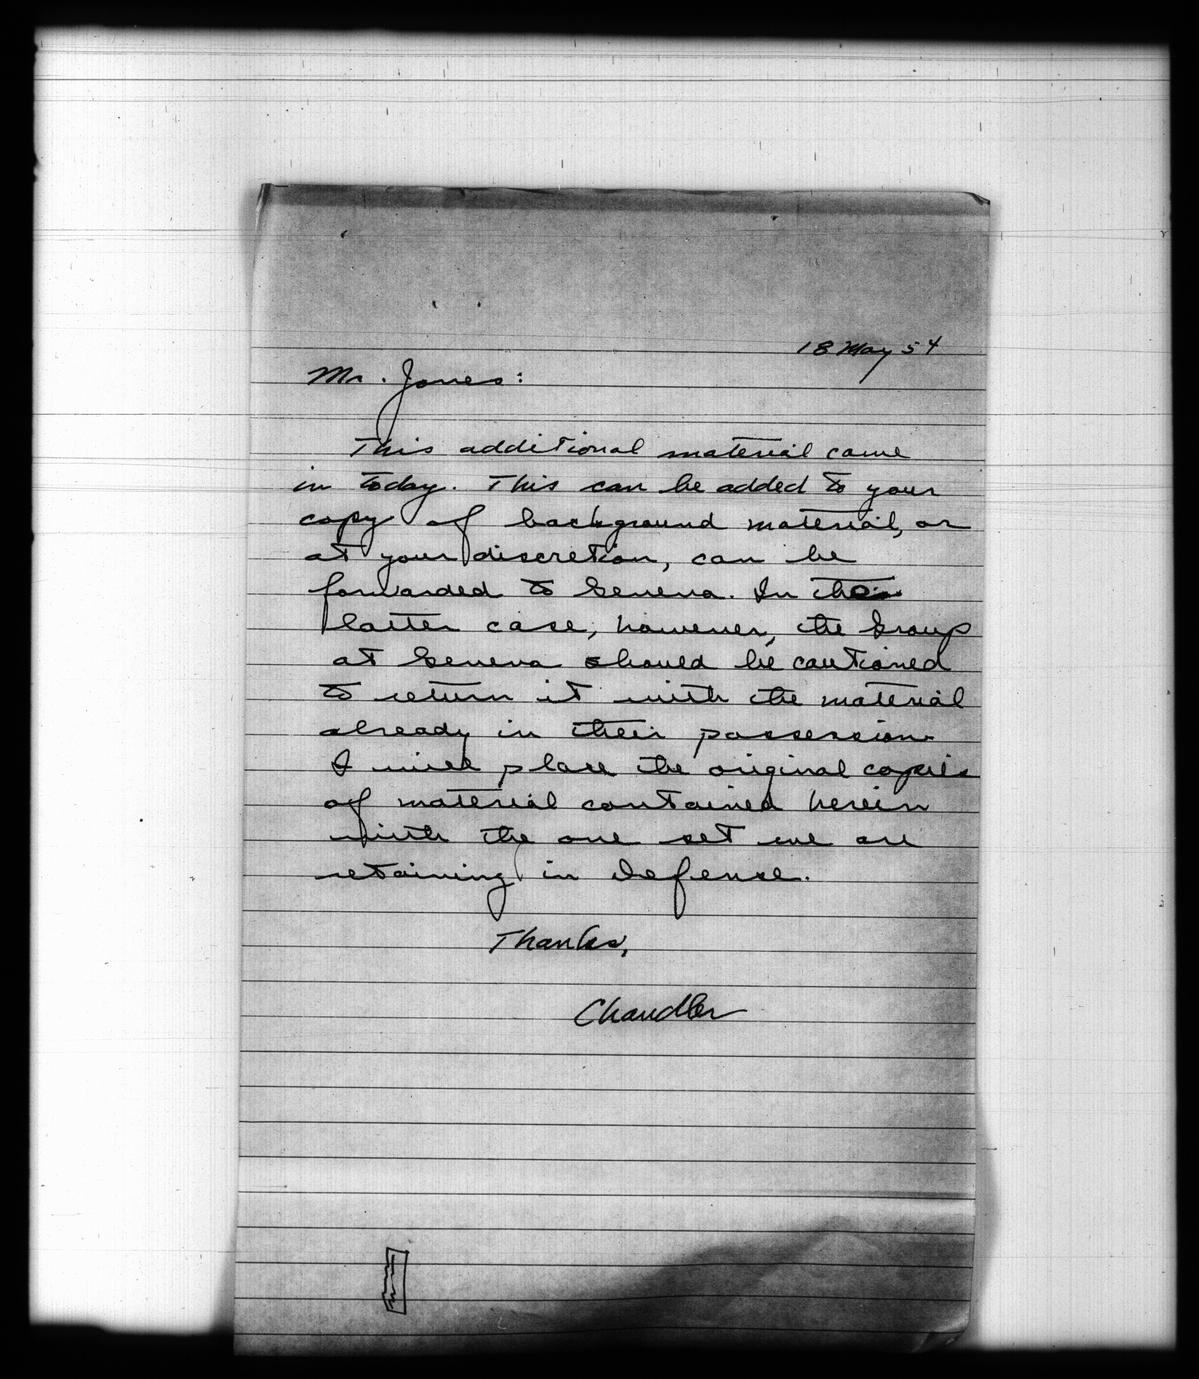 18 May 54
Mr. Jones:
This additional material came
in today. This can be added to your
copy of background material, or
at your discretion, can be
forwarded to Geneva. In the
latter case, however, the Group
at Geneva should be cautioned
to return it with the material
already in their possession.
I will place the original copies
of material contained herein
with the one set we are
retaining in Defense.
Thanks,
Chandler